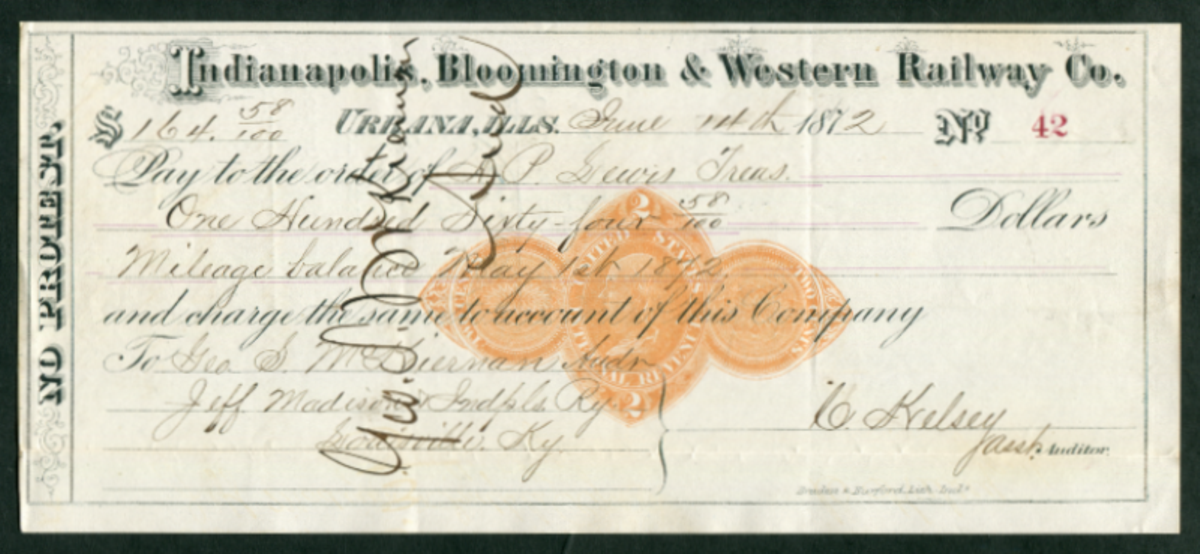 Indianapolis, Bloomington & Western Railway Co.
$ 164. 58/100 URBANA, ILLS. June 14th 1872 No. 42
Pay to the order of P. Lewis Treas.
One Hundred Sixty-four 58/100 Dollars
Mileage balance May 1st 1872
and charge the same to account of this Company
To Geo. S. McKiernan Audr
Jeff. Madison & Indpls Ry
Louisville. Ky.
C Kelsey
Asst. Auditor.
NO PROTEST.
Geo. S. McKiernan
Audr
2
UNITED STATES
INTERNAL REVENUE
TWO CENTS
2
Braden & Burford, Lith. Ind's